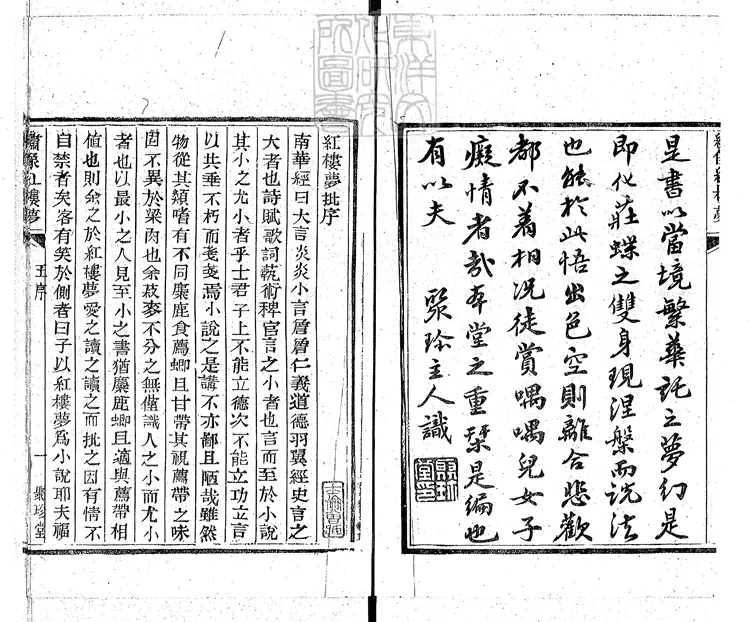 是書以當境繁華託之夢幻是
即化莊蝶之雙身現涅槃而說法
也能於此悟出色空則離合悲歡
都不着相況徒賞喁喁兒女子
癡情者哉本堂之重槧是編也
有以夫 聚珍主人識
紅樓夢批序
南華經曰大言炎炎小言詹詹仁義道德羽翼經史言之
大者也詩賦歌詞藝術稗官言之小者也言而至於小說
其小之尤小者乎士君子上不能立德次不能立功立言
以共垂不朽而戔戔焉小說之是講不亦鄙且陋哉雖然
物從其類嗜有不同麋鹿食薦蝍且甘帶其視薦帶之味
固不異於粱肉也余菽麥不分之無僅識人之小而尤小
者也以最小之人見至小之書猶麋鹿蝍且適與薦帶相
值也則余之於紅樓夢愛之讀之讀之而批之固有情不
自禁者矣客有笑於側者曰子以紅樓夢爲小說耶夫福
繡像紅樓夢 王序 一 聚珍堂
東洋文化研究所圖書